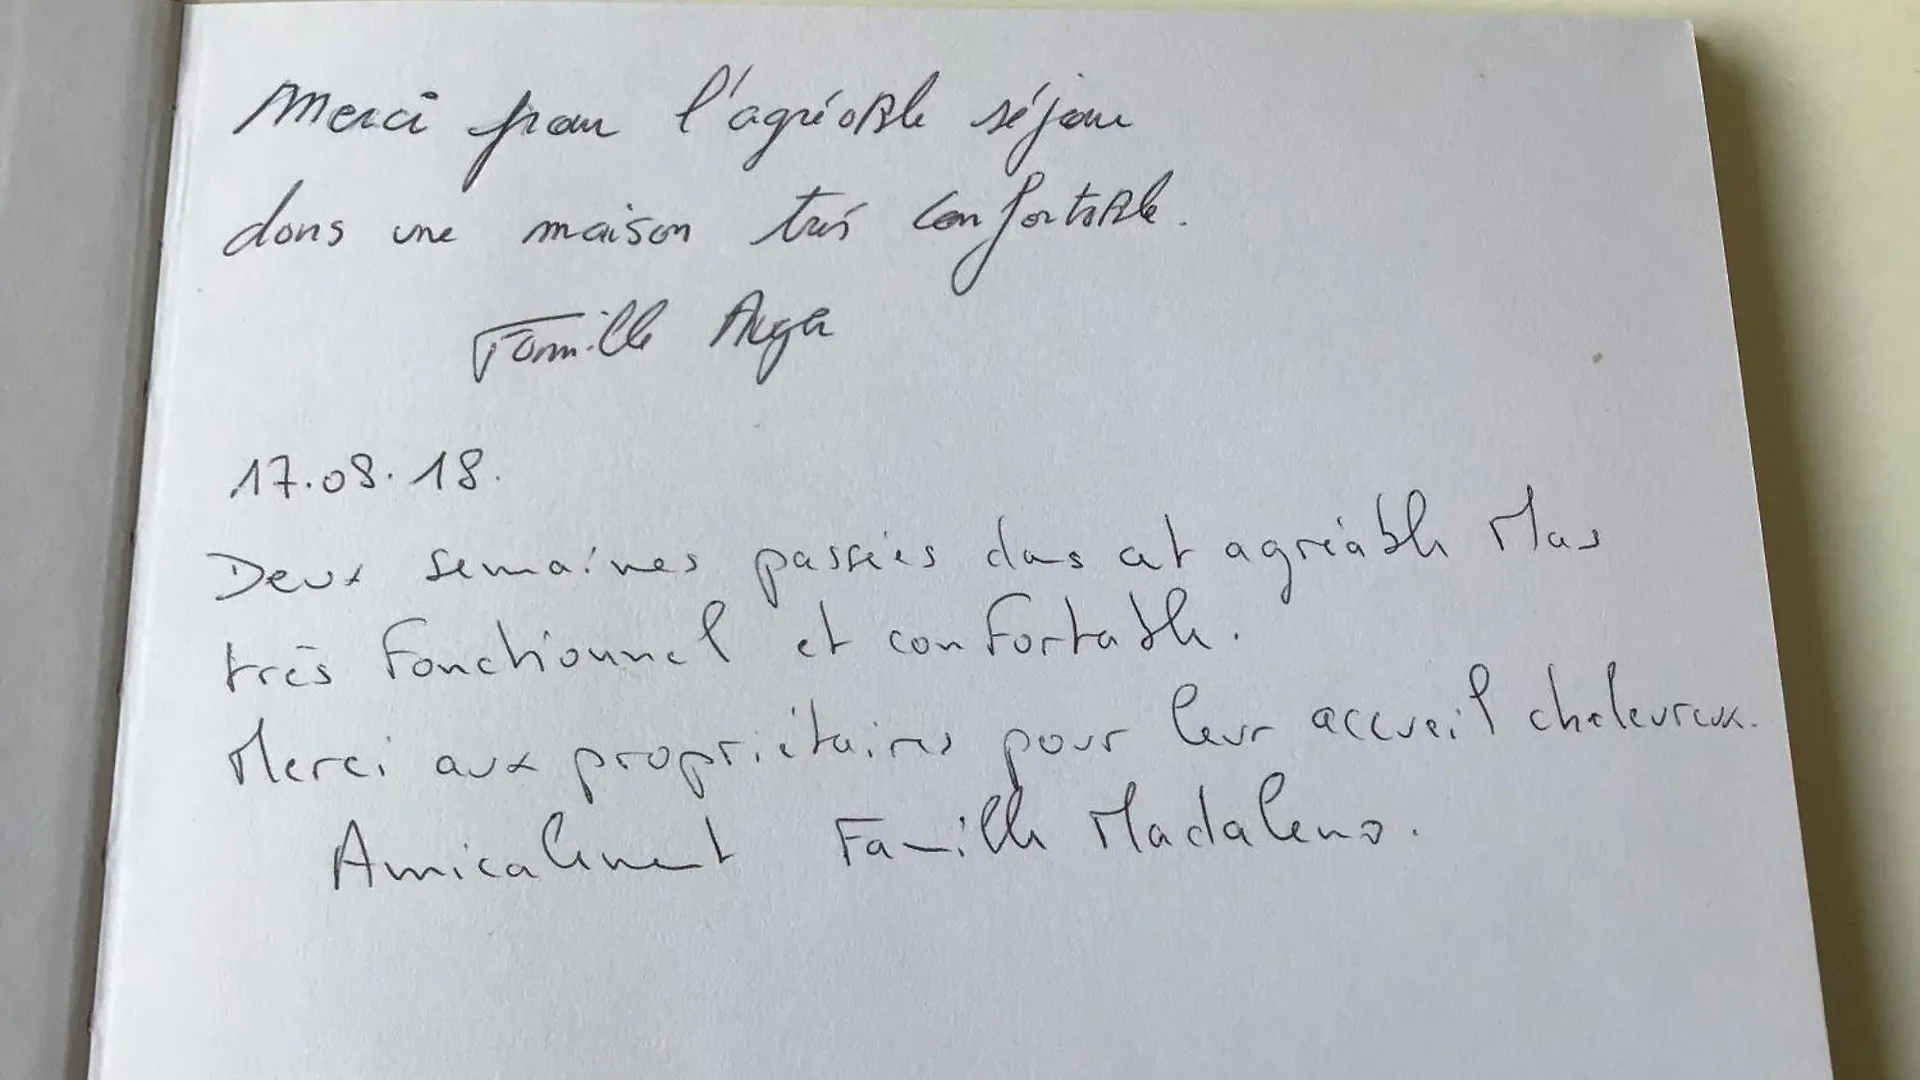 Merci pour l'agréable séjour
dans une maison très confortable.
Famille
17.08.18.
Deux semaines passées dans cet agréable Mas
très fonctionnel et confortable.
Merci aux propriétaires pour leur accueil chaleureux.
Amicalement Famille Madaleno.